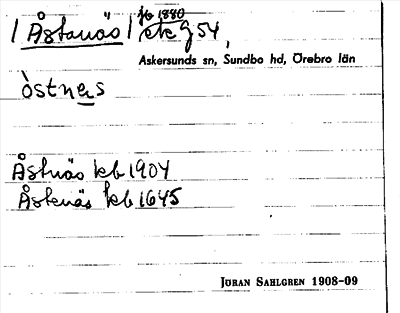 jb 1880
/ Åstanäs / ek J 54,
Askersunds sn, Sundbo hd, Örebro län
òstnęs
Åstnäs kb 1904
Åstenäs kb 1645
JÖRAN SAHLGREN 1908-09